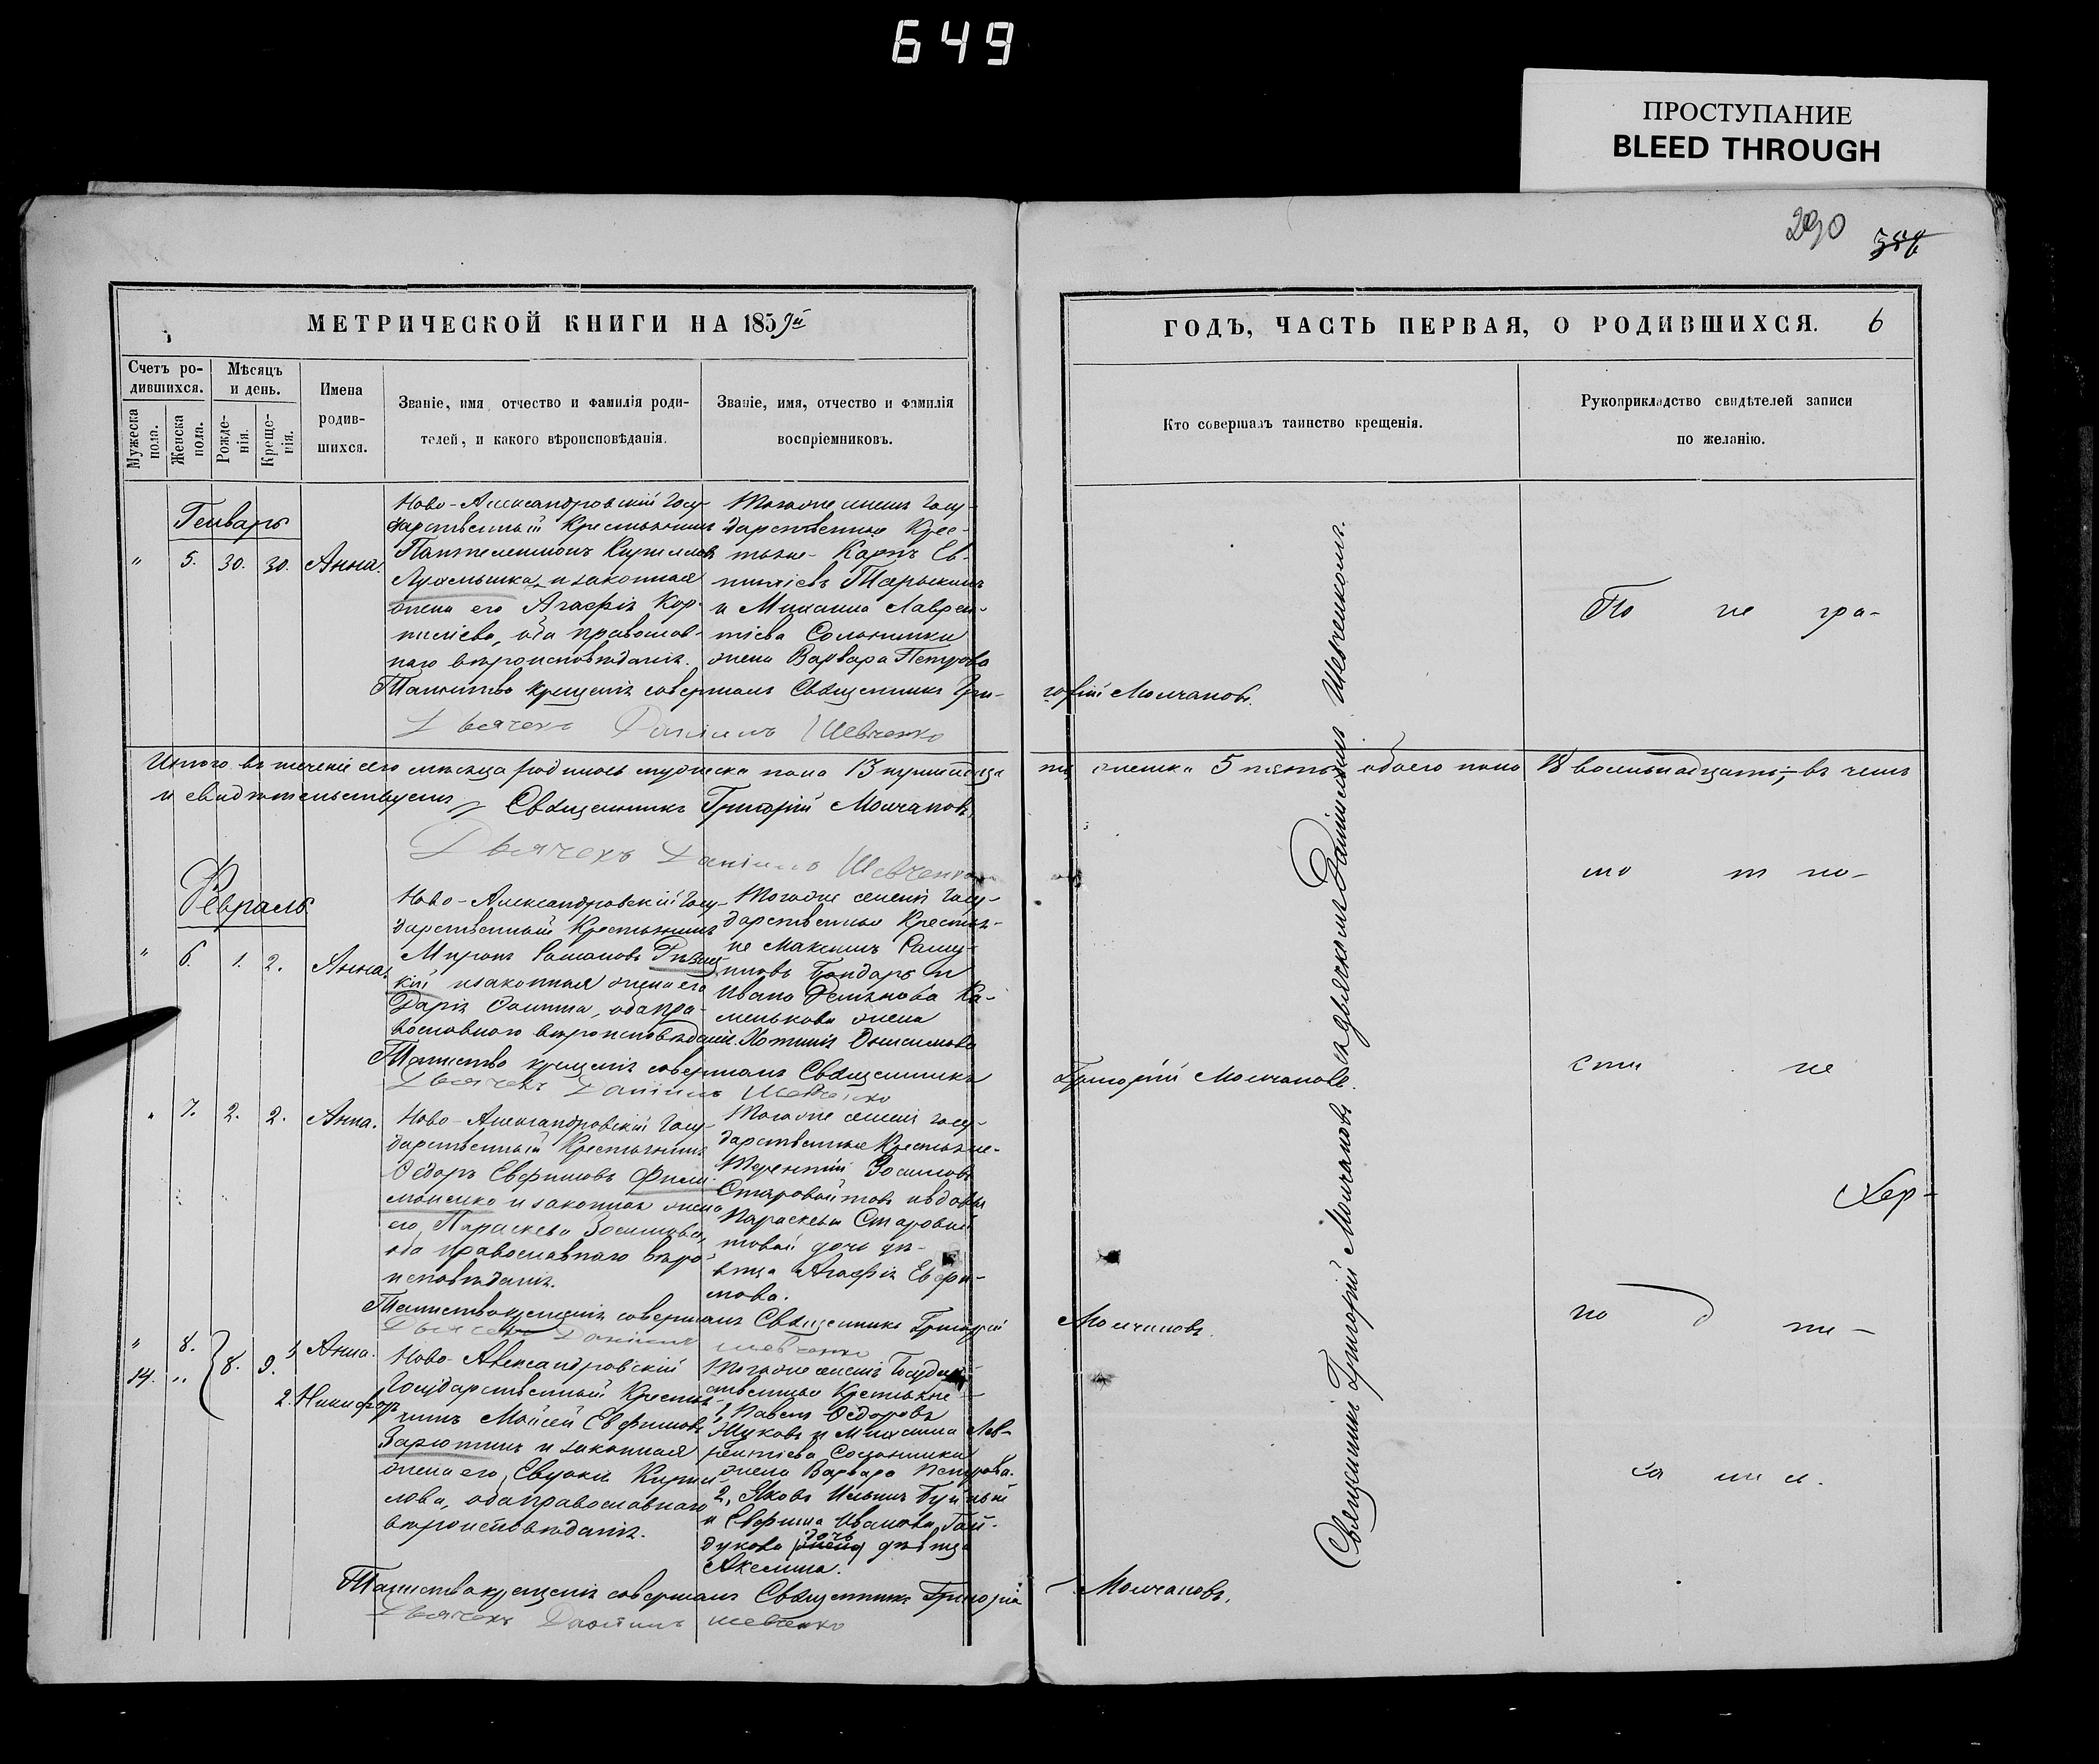 649
ПРОСТУПАНИЕ
BLEED THROUGH
290
МЕТРИЧЕСКОЙ КНИГИ НА 1859й
ГОДЪ, ЧАСТЬ ПЕРВАЯ, О РОДИВШИХСЯ. 6
Счетъ ро-
дившихся.
Мужеска
пола.
Женска
пола.
Мѣсяцъ
и день.
Рожде-
нія.
Креще-
нія.
Имена
родив-
шихся.
Званіе, имя отчество и фамилія роди-
телей, и какого вѣроисповѣданія.
Званіе, имя, отчество и фамилія
воспріемниковъ.
Кто совершалъ таинство крещенія.
Рукоприкладство свидѣтелей записи
по желанію.
Генварь
" 5. 30. 30. Анна.
Ново-Александровскій Госу-
дарственный Крестьянинъ
Пантелеимонъ Кириловъ
и законная
жена его Агафія Кор-
ниліева, оба православ-
наго вѣроисповѣданія.
Тогоже Госу-
дарственные Крес-
тьяне Карпъ Ев-
и Михаила Лаврен-
тіева
жена Варвара Петрова
Таинство крещенія совершалъ Священникъ Гри-
горій Молчановъ.
Дьячекъ Даніилъ Шевченко
Итого въ теченіе сего мѣсяца родилось мужеска пола 13 тринадца-
ть женска 5 пять обоего пола 18 восемнадцать, въ чемъ
и свидѣтельствуемъ Священникъ Григорій Молчановъ
Дьячекъ Даніилъ Шевченко
Февраль
" 6. 1. 2. Анна.
Ново-Александровскій Госу-
дарственный Крестьянинъ
Миронъ Романовъ
и законная жена его
Дарія оба пра-
вославнаго вѣроисповѣданія.
Тогоже селенія Госу-
дарственные Крестья-
не Максимъ
Бондарь и
Ивана Ка-
менькова жена
Таинство крещенія совершалъ Священникъ
Григорій Молчановъ.
Дьячекъ Даніилъ Шевченко
" 7. 2. 2. Анна.
Ново-Александровскій Госу-
дарственный Крестьянинъ
Ѳедоръ Евфимовъ Фили-
моненко и законная жена
его, Параскева Зосимова,
оба православнаго вѣро-
исповѣданія.
Тогоже селенія Госу-
дарственные Крестьяне
Терентій Зосимовъ
Старовойтовъ и вдовы
Параскевы Старовой-
товой дочь дѣ-
вица Агафія Евфи-
мова.
Таинство крещенія совершалъ Священникъ Григорій
Молчановъ.
Дьячекъ Даніилъ Шевченко
" 8. 8. 9. 1, Анна.
14. " 2. Никифоръ
Ново-Александровскій
Государственный Крестья-
нинъ Моисей Евфимовъ
Зарютинъ и законная
жена его, Евдокія Кирил-
лова, оба православнаго
вѣроисповѣданія.
Тогоже селенія Государ-
ственные Крестьяне
1, Павелъ Ѳедоровъ
Жуковъ и Михаила Лав-
рентіева
жена Варвара Петрова.
2, Яковъ Ильинъ
и Евфима Иванова Гай-
дукова дочь дѣвица
Акелина.
Таинство крещенія совершалъ Священникъ Григорій
Молчановъ.
Дьячекъ Даніилъ Шевченко
Священникъ Григорій Молчановъ съ дьячкомъ Даніиломъ Шевченкомъ.
По не гра-
мо т но-
сти не
Хер-
по д пи-
са ли.